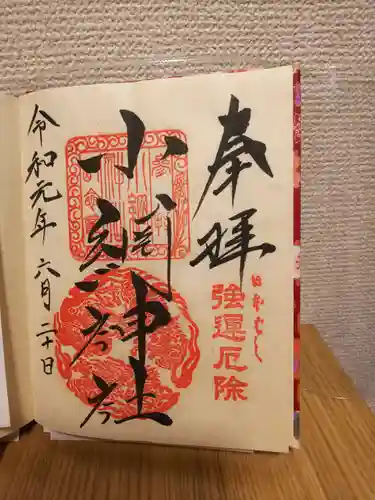 奉拝
強運厄除
小網神社
令和元年六月二十日